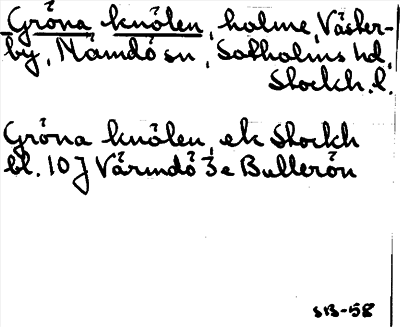 Gröna knölen, holme, Väster-
by, Nämdö sn, Sotholms hd,
Stockh. l.
Gröna knölen, ek Stockh
bl. 10 J Värmdö 3 e Bullerön
SB-58